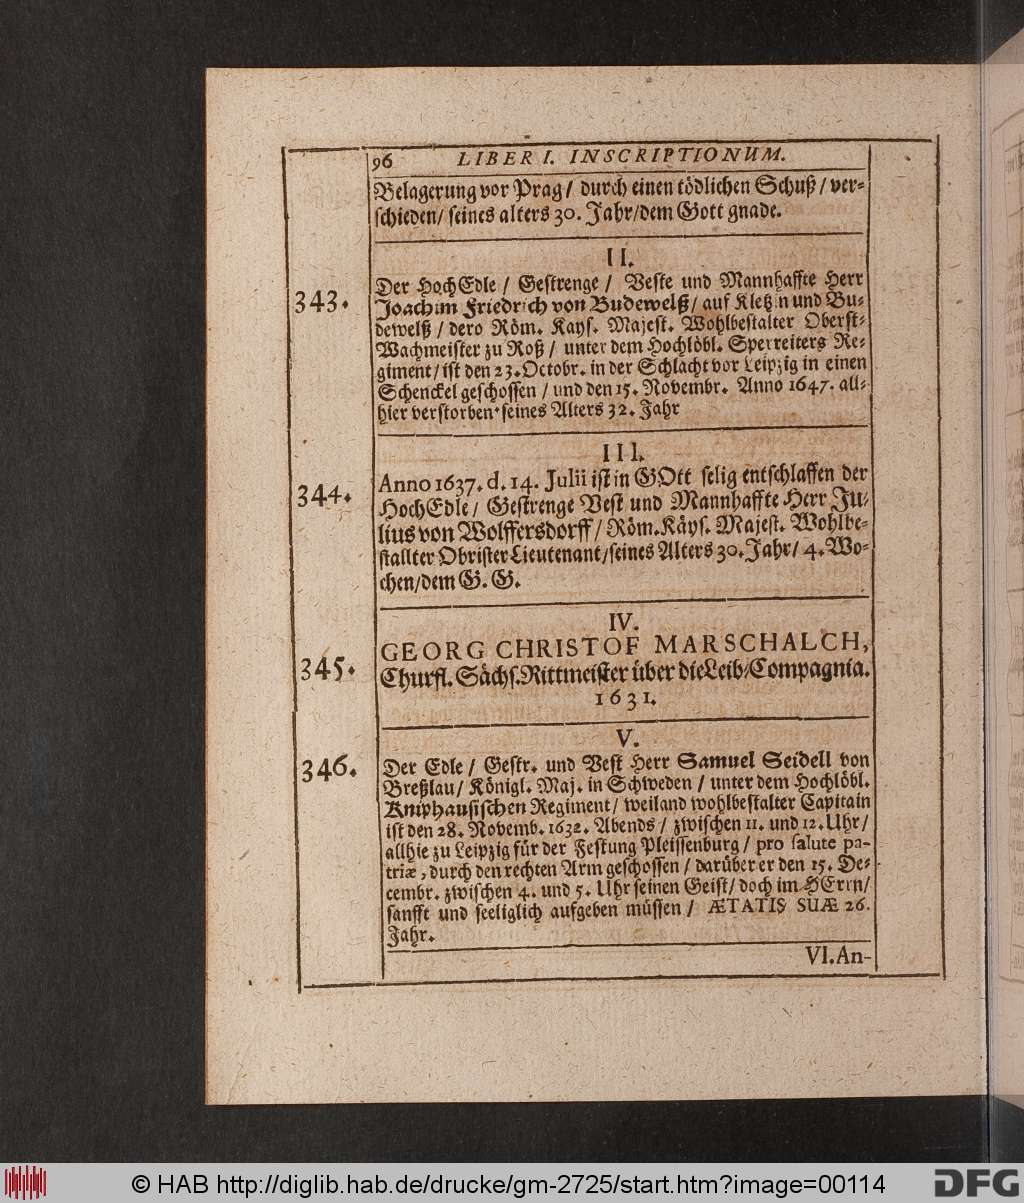 96 LIBER I. INSCRIPTIONUM.
Belagerung vor Prag / durch einen tödlichen Schuß / ver-
schieden / seines alters 30. Jahr/dem Gott gnade.
II.
343. Der HochEdle / Gestrenge / Veste und Mannhaffte Herr
Joachim Friedrich von Budewelß / auf Kletzin und Bu-
dewelß / dero Röm. Kays. Majest. Wohlbestalter Oberst-
Wachmeister zu Roß / unter dem Hochlöbl. Sperreiters Re-
giment / ist den 23. Octobr. in der Schlacht vor Leipzig in einen
Schenckel geschossen / und den 15. Novembr. Anno 1647. all-
hier verstorben. seines Alters 32. Jahr
III.
344. Anno 1637. d. 14. Julii ist in GOtt selig entschlaffen der
HochEdle / Gestrenge Vest und Mannhaffte Herr Ju-
lius von Wolffersdorff / Röm. Käys. Majest. Wohlbe-
stallter Obrister Lieutenant / seines Alters 30. Jahr / 4. Wo-
chen / dem G. G.
IV.
345. GEORG CHRISTOF MARSCHALCH,
Churfl. Sächs. Rittmeister über die Leib-Compagnia.
1631.
V.
346. Der Edle / Gestr. und Vest Herr Samuel Seidell von
Breßlau / Königl. Maj. in Schweden / unter dem Hochlöbl.
Kniphausischen Regiment / weiland wohlbestalter Capitain
ist den 28. Novemb. 1632. Abends / zwischen 11. und 12. Uhr /
allhie zu Leipzig für der Festung Pleissenburg / pro salute pa-
triæ, durch den rechten Arm geschossen / darüber er den 15. De-
cembr. zwischen 4. und 5. Uhr seinen Geist / doch im HErrn /
sanfft und seeliglich aufgeben müssen / ÆTATIS SUÆ 26.
Jahr.
VI. An-
© HAB http://diglib.hab.de/drucke/gm-2725/start.htm?image=00114
DFG